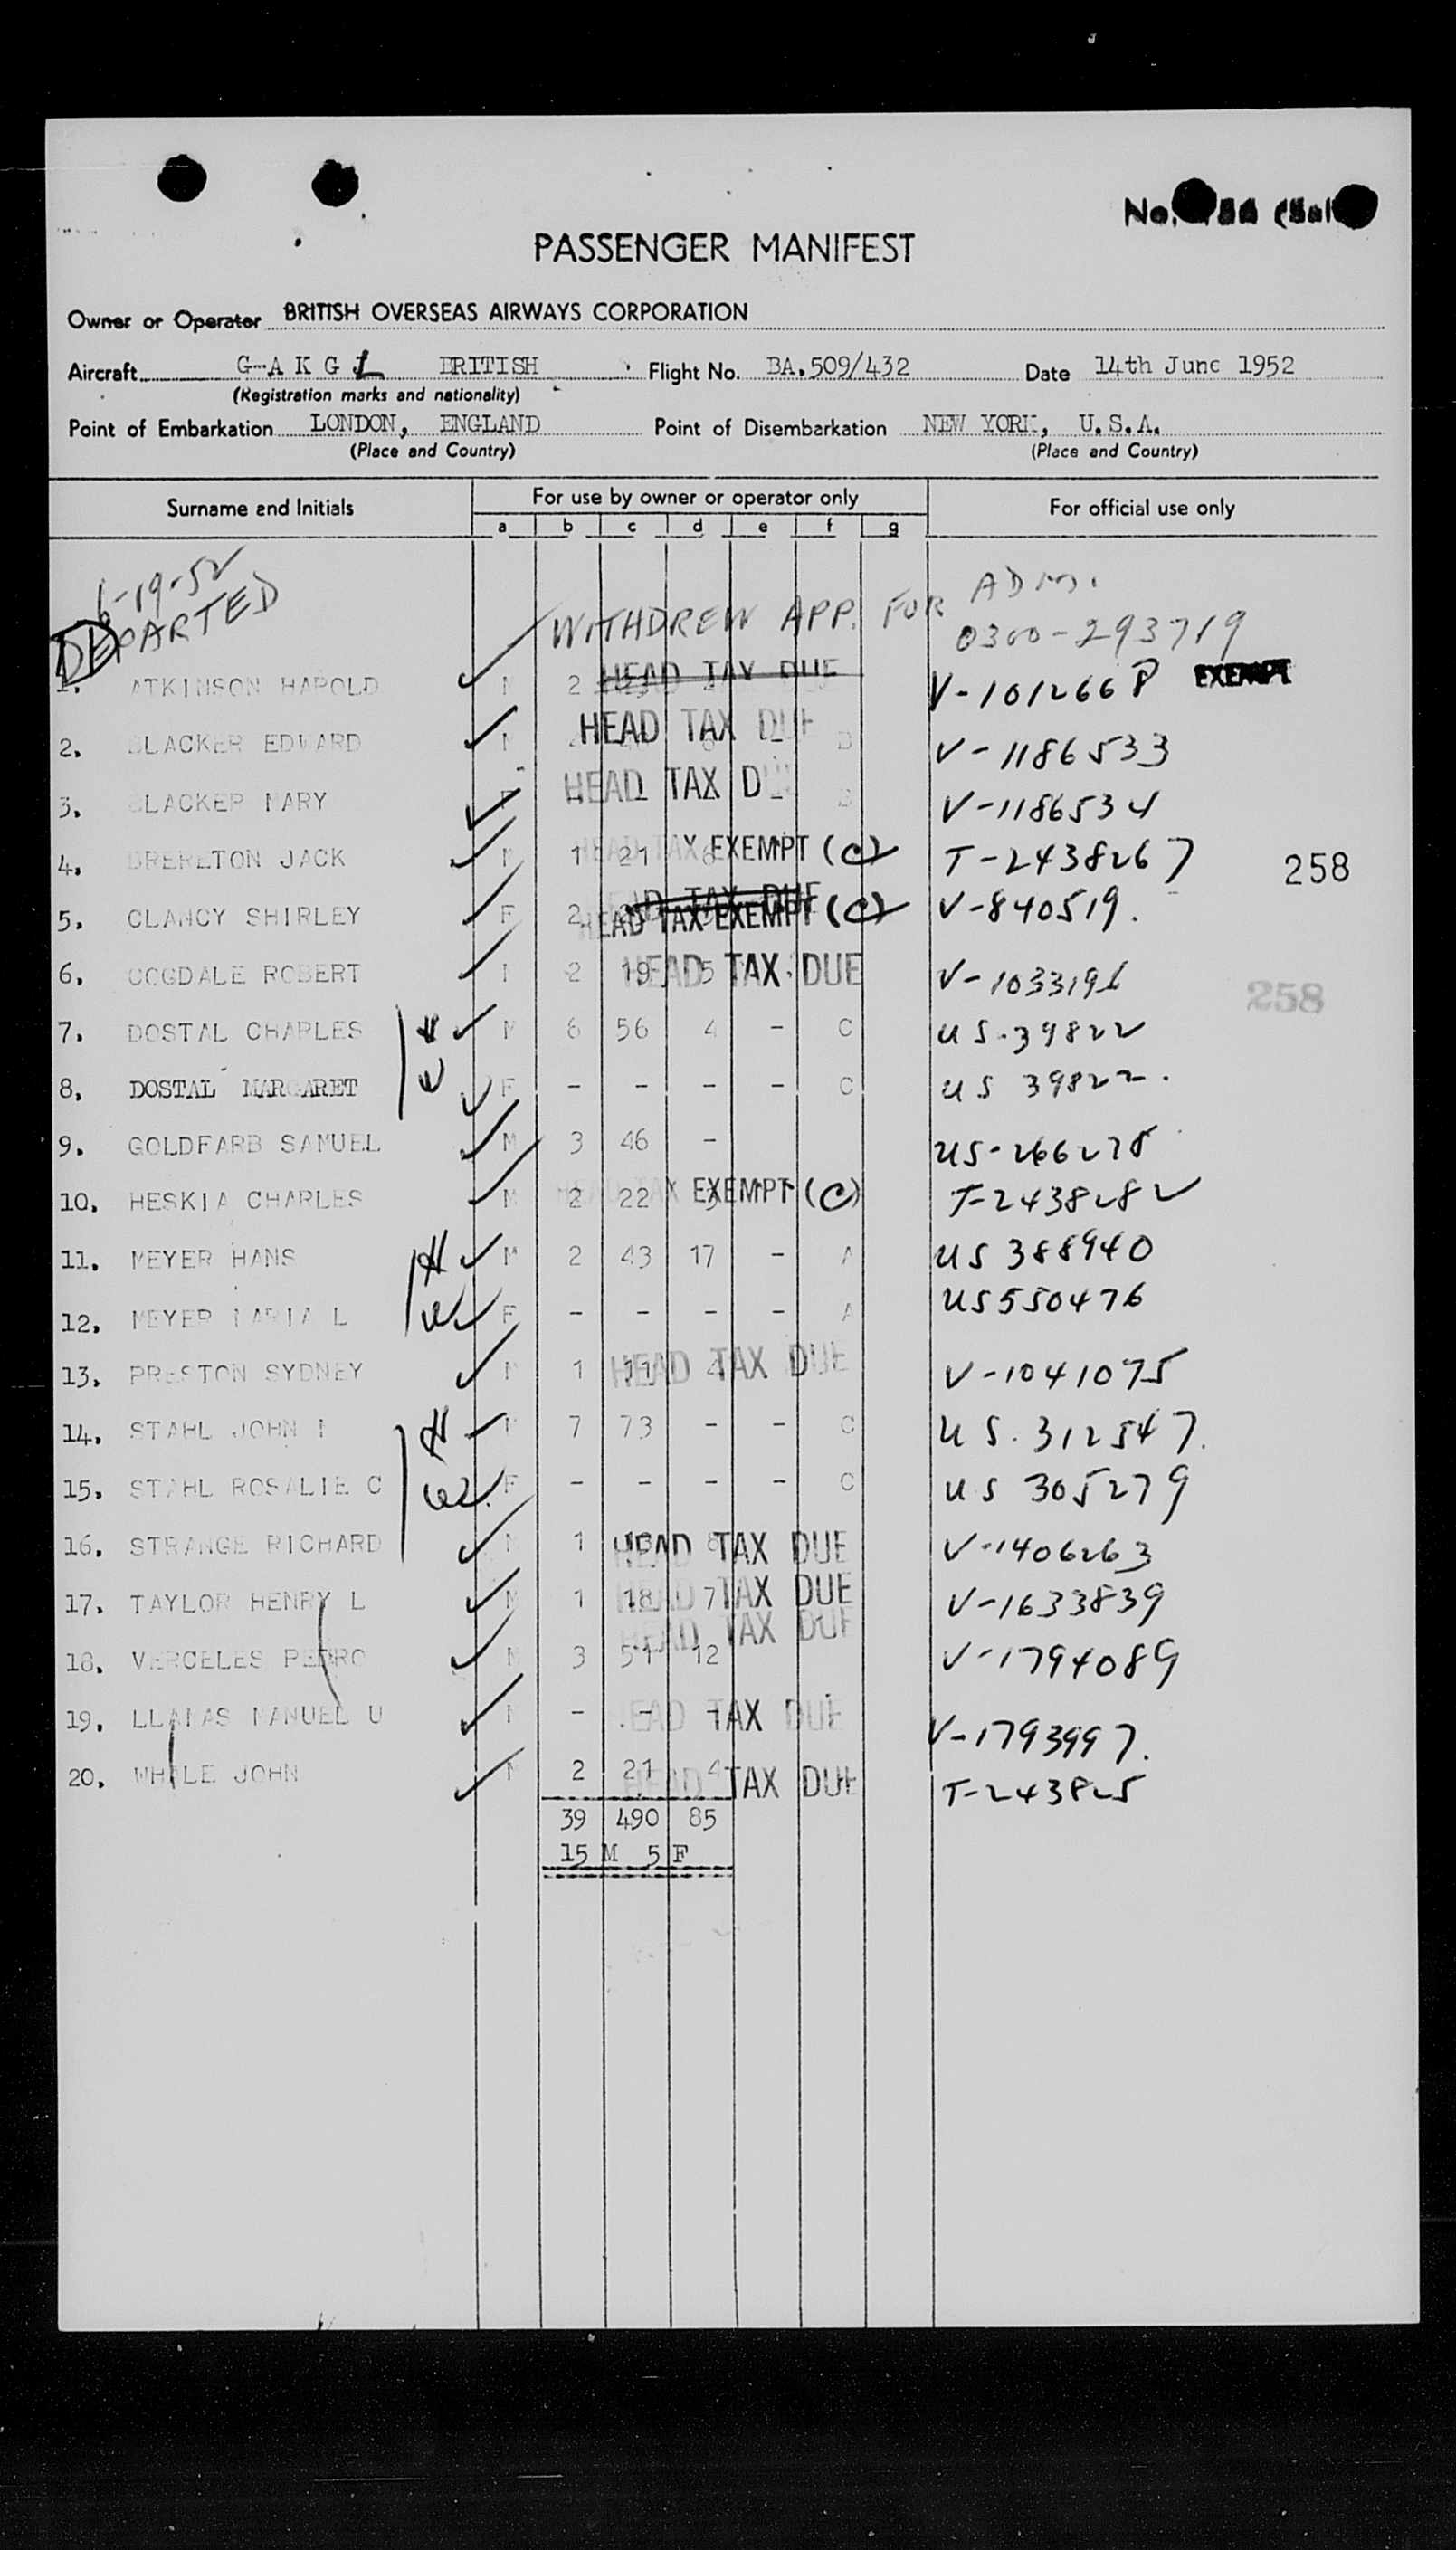 PASSENGER MANIFEST
No.
Owner or Operator BRITISH OVERSEAS AIRWAYS CORPORATION
Aircraft G-A K G L BRITISH Flight No. BA.509/432 Date 14th June 1952
(Registration marks and nationality)
Point of Embarkation LONDON, ENGLAND Point of Disembarkation NEW YORK, U.S.A.
(Place and Country) (Place and Country)
Surname and Initials For use by owner or operator only For official use only
a b c d e f g
6-19-52
DEPARTED WITHDREW APP. FOR ADM.
0300-293719
1. ATKINSON HAROLD M 2 HEAD TAX DUE V-1012668 EXEMPT
2. BLACKER EDWARD M HEAD TAX DUE B V-1186533
3. BLACKER MARY F HEAD TAX DUE B V-1186534
4. BRERETON JACK M 1 21 HEAD TAX EXEMPT (C) T-2438267 258
5. CLANCY SHIRLEY F 2 HEAD TAX DUE HEAD TAX EXEMPT (C) V-840519.
6. COGDALE ROBERT M 2 19 5 HEAD TAX DUE V-1033196 258
7. DOSTAL CHARLES H M 6 56 4 - C US-39822
8. DOSTAL MARGARET W F - - - - C US 39822.
9. GOLDFARB SAMUEL M 3 46 - US-266278
10. HESKIA CHARLES M 2 22 HEAD TAX EXEMPT (C) T-2438282
11. MEYER HANS H M 2 43 17 - A US 388940
12. MEYER MARIA L W F - - - - A US 550476
13. PRESTON SYDNEY M 1 HEAD TAX DUE V-1041075
14. STAHL JOHN M H M 7 73 - - C US. 312547.
15. STAHL ROSALIE C W F - - - - C US 305279
16. STRANGE RICHARD M 1 8 HEAD TAX DUE V-1406263
17. TAYLOR HENRY L M 1 18 7 HEAD TAX DUE V-1633839
18. VERCELES PEDRO M 3 51 12 HEAD TAX DUE V-1794089
19. LLAMAS MANUEL U M - - - HEAD TAX DUE V-1793997.
20. WHALE JOHN M 2 21 4 HEAD TAX DUE T-243825
39 490 85
15 M 5 F